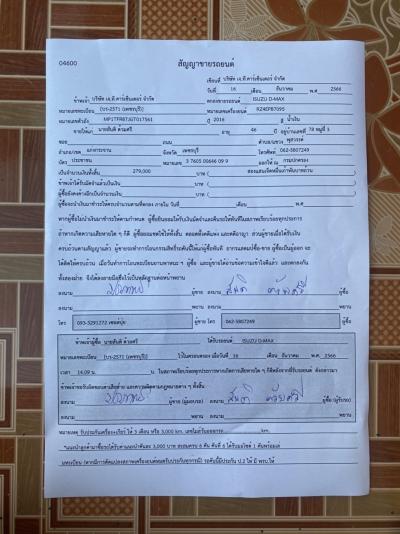 04600
สัญญาขายรถยนต์
เขียนที่ บริษัท เจ.ที.คาร์เซ็นเตอร์ จำกัด
วันที่ 16 เดือน ธันวาคม พ.ศ. 2566
ข้าพเจ้า บริษัท เจ.ที.คาร์เซ็นเตอร์ จำกัด ตกลงขายรถยนต์ ISUZU D-MAX
หมายเลขทะเบียน [บว-2571 (เพชรบุรี)] หมายเลขเครื่องยนต์ RZ4EPB7095
หมายเลขตัวถัง MP1TFR87JGT017561 ปี 2016 สี น้ำเงิน
ขายให้แก่ นายสันติ อายุ 46 ปี อยู่บ้านเลขที่ 78 หมู่ที่ 3
ซอย ถนน ตำบล/แขวง พุสวรรค์
อำเภอ/เขต แก่งกระจาน จังหวัด เพชรบุรี โทรศัพท์ 062-5807249
บัตร ประชาชน หมายเลข 3 7605 00646 09 9 ออกให้ ณ กรมปกครอง
เป็นจำนวนเงินทั้งสิ้น 279,000 บาท ( สองแสนเจ็ดหมื่นเก้าพันบาทถ้วน
ข้าพเจ้าได้รับมัดจำแล้วเป็นเงิน บาท (
ผู้ซื้อยังคงค้างอีกเป็นจำนวนเงิน บาท (
ผู้ซื้อจะนำเงินมาชำระให้ครบจำนวนตามที่ตกลง ภายใน วันที่ เดือน พ.ศ.
หากผู้ซื้อไม่นำเงินมาชำระให้ตามกำหนด ผู้ซื้อยินยอมให้ริบเงินมัดจำและคืนรถให้ทันทีในสภาพเรียบร้อยทุกประการ
ถ้าหากเกิดความเสียหายใด ๆ ก็ดี ผู้ซื้อยอมชดใช้ให้ทั้งสิ้น ตลอดทั้งคดีแพ่ง และคดีอาญา ส่วนผู้ขายเมื่อได้รับเงิน
ครบถ้วนตามสัญญาแล้ว ผู้ขายจะทำการโอนกรรมสิทธิ์รถคันนี้ให้แก่ผู้ซื้อทันที
ได้คิดให้ครบถ้วน เมื่อวันทำการโอนทะเบียนยานพาหนะ ฯ ผู้ซื้อ และผู้ขายได้อ่านข้อความเข้าใจดีแล้ว และตกลงกัน
ทั้งสองฝ่าย จึงได้ลงลายมือชื่อไว้เป็นหลักฐานต่อหน้าพยาน
ลงนาม ผู้ขาย ลงนาม สันติ ผู้ซื้อ
ลงนาม พยาน ลงนาม พยาน
โทร 093-3291272 ผู้ขาย โทร 062-5807249 ผู้ซื้อ
ข้าพเจ้าผู้ซื้อ นายสันติ ได้รับรถยนต์ ISUZU D-MAX
หมายเลขทะเบียน [บว-2571 (เพชรบุรี)] ไว้ในครอบครอง เมื่อวันที่ 16 เดือน ธันวาคม พ.ศ. 2566
เวลา 14.09 น. ในสภาพเรียบร้อยทุกประการหากเกิดการเสียหายใด ๆ
ลงนาม ผู้ขาย (ผู้มอบรถ) ลงนาม สันติ ผู้ซื้อ (ผู้รับรถ)
ลงนาม พยาน ลงนาม พยาน
หมายเหตุ รับประกันเครื่อง+เกียร์ ให้ 3 เดือน หรือ 3,000 km. เลขไมล์วันออกรถ km.
*แนะนำลูกค้ามาซื้อรถได้รับค่าแนะนำคันละ 3,000 บาท